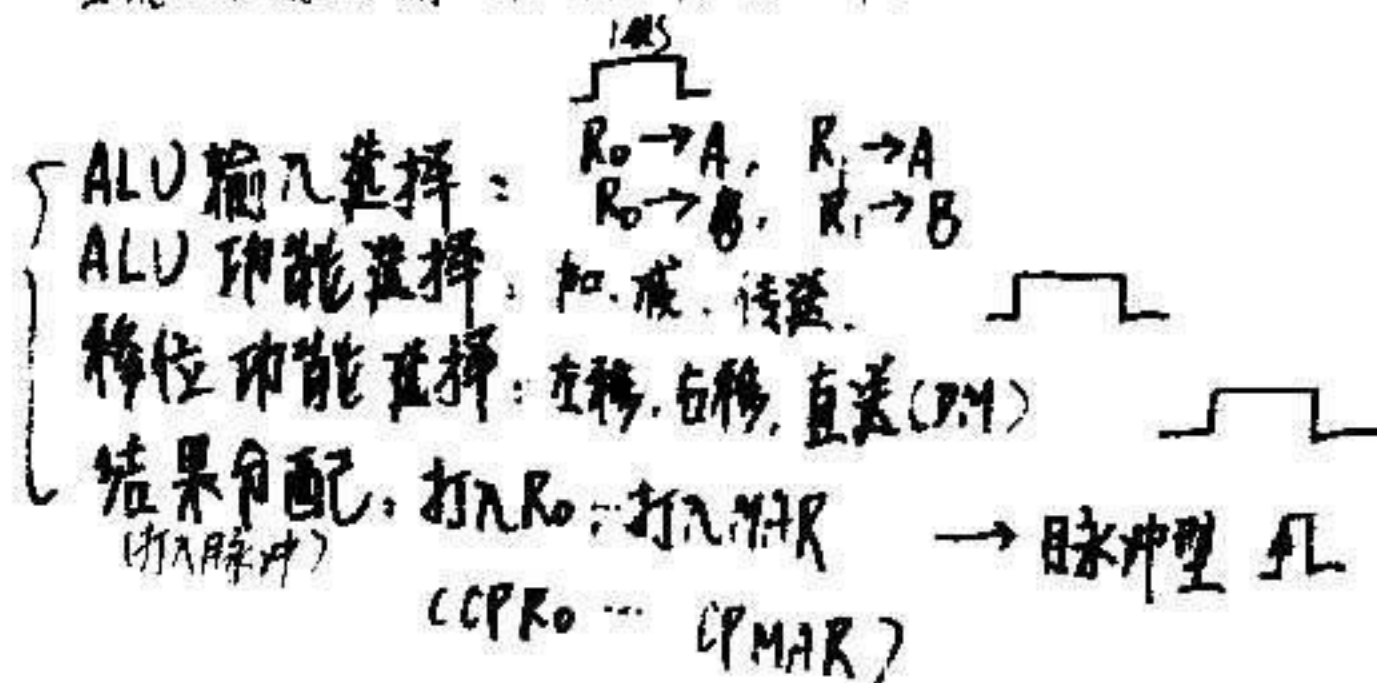 1us
ALU 输入选择: R₀→A, R₁→A
R₀→B, R₁→B
ALU 功能选择: 加、减、传送.
移位功能选择: 左移、右移、直送(DM)
结果分配: 打入R₀…打入MAR → 脉冲型
(打入脉冲)
(CPR₀ … CPMAR)